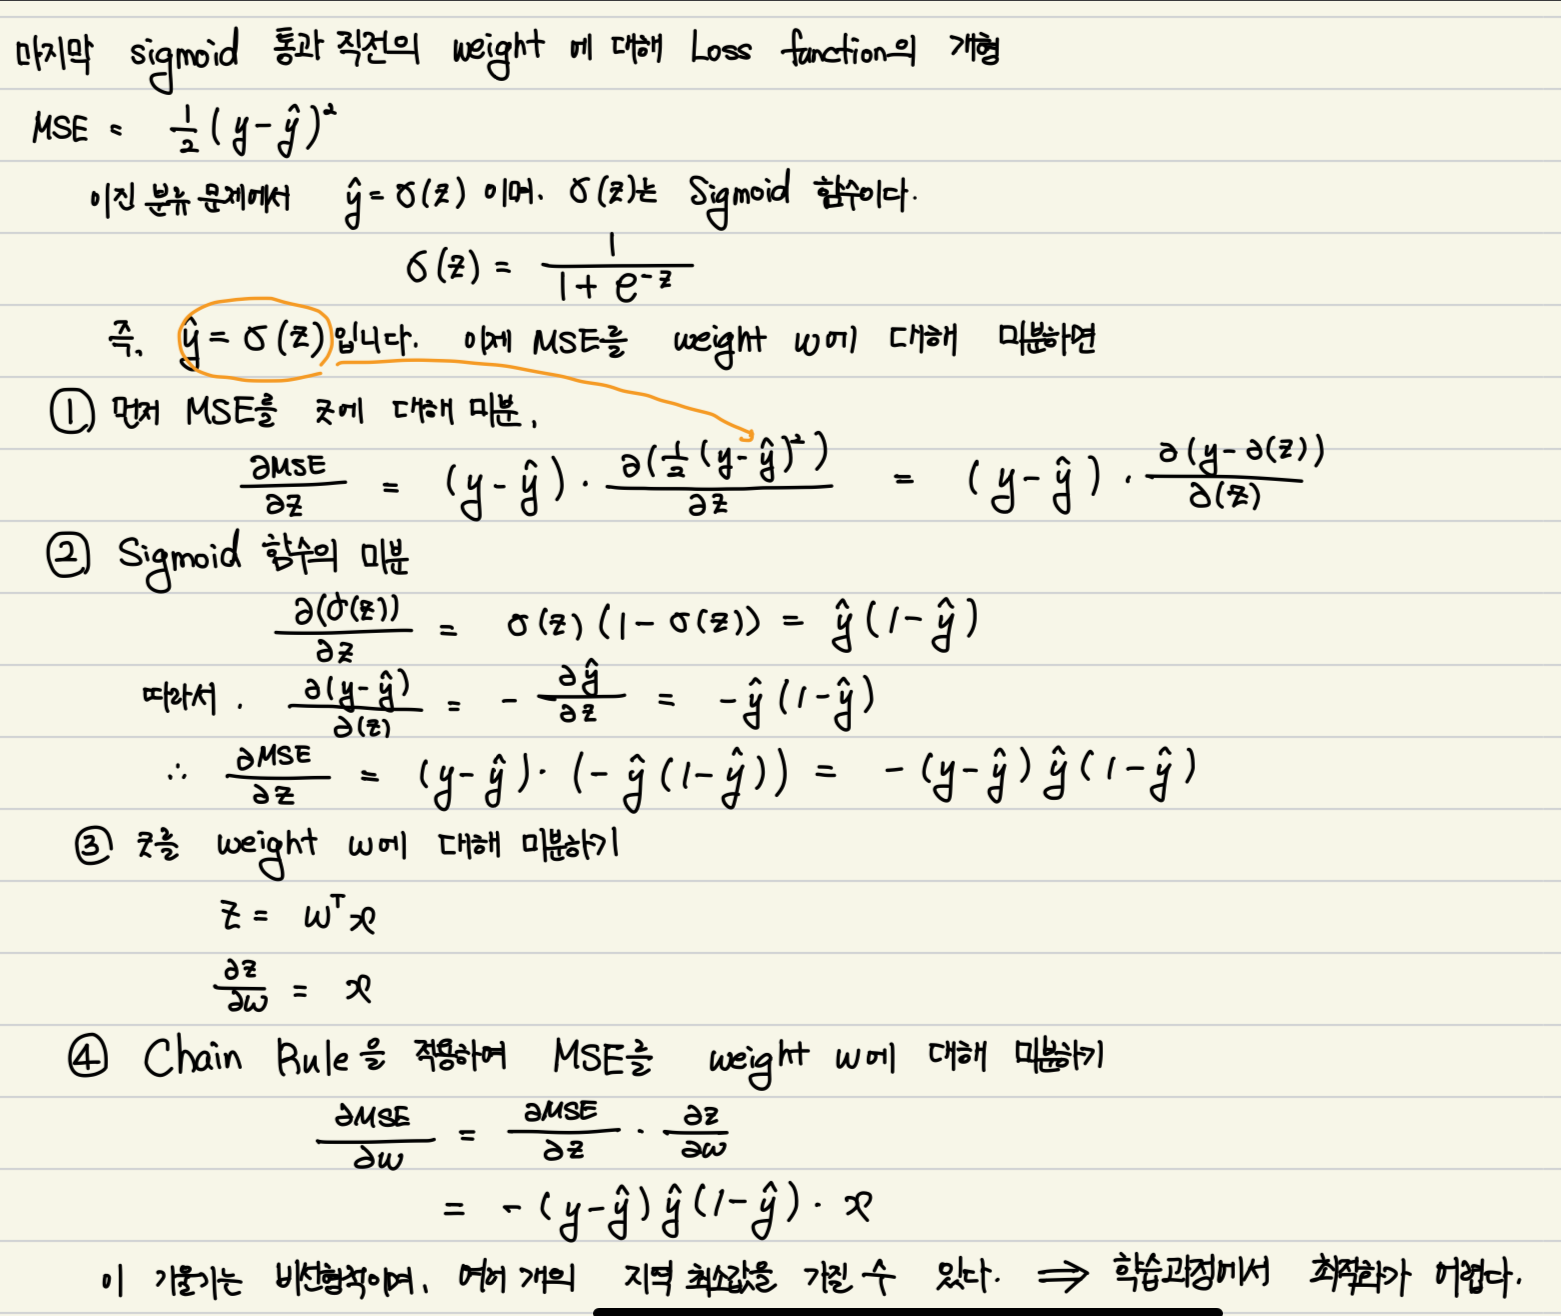 마지막 sigmoid 통과 직전의 weight 에 대해 Loss function의 개형
MSE = 1/2 (y-ŷ)²
이진 분류 문제에서 ŷ = σ(z) 이며. σ(z)는 Sigmoid 함수이다.
σ(z) = 1/(1+e^(-z))
즉, ŷ = σ(z) 입니다. 이제 MSE를 weight w에 대해 미분하면
① 먼저 MSE를 z에 대해 미분,
∂MSE/∂z = (y-ŷ) · ∂(1/2 (y-ŷ)²)/∂z = (y-ŷ) · ∂(y-∂(z))/∂(z)
② Sigmoid 함수의 미분
∂(σ(z))/∂z = σ(z)(1-σ(z)) = ŷ(1-ŷ)
따라서. ∂(y-ŷ)/∂(z) = - ∂ŷ/∂z = -ŷ(1-ŷ)
∴ ∂MSE/∂z = (y-ŷ)·(-ŷ(1-ŷ)) = -(y-ŷ)ŷ(1-ŷ)
③ z를 weight w에 대해 미분하기
z = wᵀx
∂z/∂w = x
④ Chain Rule을 적용하여 MSE를 weight w에 대해 미분하기
∂MSE/∂w = ∂MSE/∂z · ∂z/∂w
= -(y-ŷ)ŷ(1-ŷ)·x
이 기울기는 비선형적이며, 여러 개의 지역 최소값을 가질 수 있다. ⇒ 학습과정에서 최적화가 어렵다.